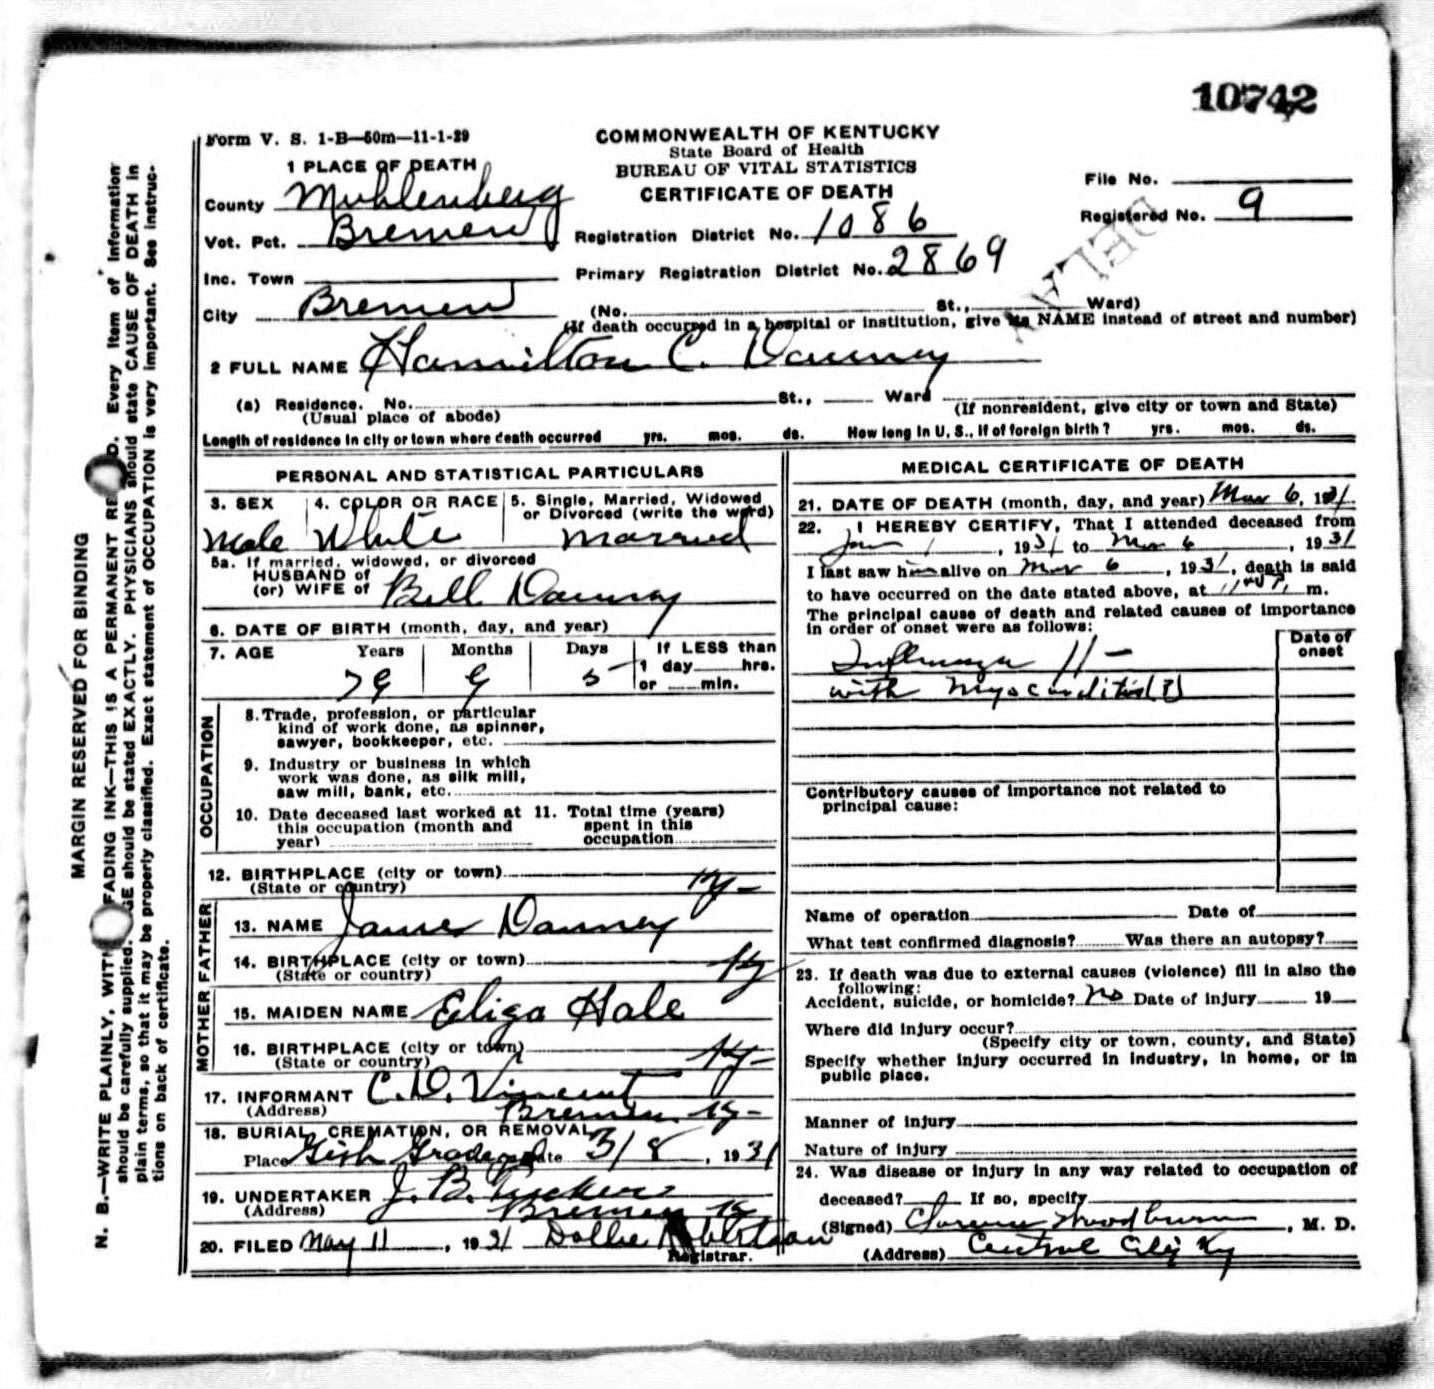 10742
Form V. S. 1-B—50m—11-1-29
COMMONWEALTH OF KENTUCKY
State Board of Health
BUREAU OF VITAL STATISTICS
CERTIFICATE OF DEATH
1 PLACE OF DEATH
County Muhlenberg
Vot. Pct. Bremen
Inc. Town
City Bremen
File No.
Registered No. 9
DELAY
Registration District No. 1086
Primary Registration District No. 2869
(No. St., Ward)
(If death occurred in a hospital or institution, give its NAME instead of street and number)
2 FULL NAME Hamilton C.
(a) Residence. No. St., Ward
(Usual place of abode)
(If nonresident, give city or town and State)
Length of residence in city or town where death occurred yrs. mos. ds. How long in U. S., if of foreign birth? yrs. mos. ds.
PERSONAL AND STATISTICAL PARTICULARS
3. SEX 4. COLOR OR RACE 5. Single, Married, Widowed
or Divorced (write the word)
Male White Married
5a. If married, widowed, or divorced
HUSBAND of
(or) WIFE of Bell
6. DATE OF BIRTH (month, day, and year)
7. AGE Years Months Days If LESS than
1 day hrs.
or min.
79 9 5
OCCUPATION
8. Trade, profession, or particular
kind of work done, as spinner,
sawyer, bookkeeper, etc.
9. Industry or business in which
work was done, as silk mill,
saw mill, bank, etc.
10. Date deceased last worked at
this occupation (month and
year)
11. Total time (years)
spent in this
occupation
12. BIRTHPLACE (city or town)
(State or country) Ky-
FATHER
13. NAME James
14. BIRTHPLACE (city or town)
(State or country) Ky
MOTHER
15. MAIDEN NAME Eliza Hale
16. BIRTHPLACE (city or town)
(State or country) Ky-
17. INFORMANT C. D. Vincent
(Address) Bremen Ky-
18. BURIAL, CREMATION, OR REMOVAL
Place Gish Date 3/8, 1931
19. UNDERTAKER J. B. Tucker
(Address) Bremen Ky
20. FILED May 11, 1931 Dollie Robertson
Registrar.
MEDICAL CERTIFICATE OF DEATH
21. DATE OF DEATH (month, day, and year) Mar 6, 1931
22. I HEREBY CERTIFY, That I attended deceased from
Jan 1, 1931 to Mar 6, 1931
I last saw him alive on Mar 6, 1931, death is said
to have occurred on the date stated above, at m.
The principal cause of death and related causes of importance
in order of onset were as follows:
Date of
onset
Influenza
with Myocarditis (?)
Contributory causes of importance not related to
principal cause:
Name of operation Date of
What test confirmed diagnosis? Was there an autopsy?
23. If death was due to external causes (violence) fill in also the
following:
Accident, suicide, or homicide? no Date of injury 19
Where did injury occur?
(Specify city or town, county, and State)
Specify whether injury occurred in industry, in home, or in
public place.
Manner of injury
Nature of injury
24. Was disease or injury in any way related to occupation of
deceased? If so, specify
(Signed) Clarence Woodburn, M. D.
(Address) Central City Ky
MARGIN RESERVED FOR BINDING
N. B.—WRITE PLAINLY, WITH FADING INK—THIS IS A PERMANENT Every item of information
should be carefully supplied. AGE should be stated EXACTLY. PHYSICIANS should state CAUSE OF DEATH in
plain terms, so that it may be properly classified. Exact statement of OCCUPATION is very important. See instruc-
tions on back of certificate.